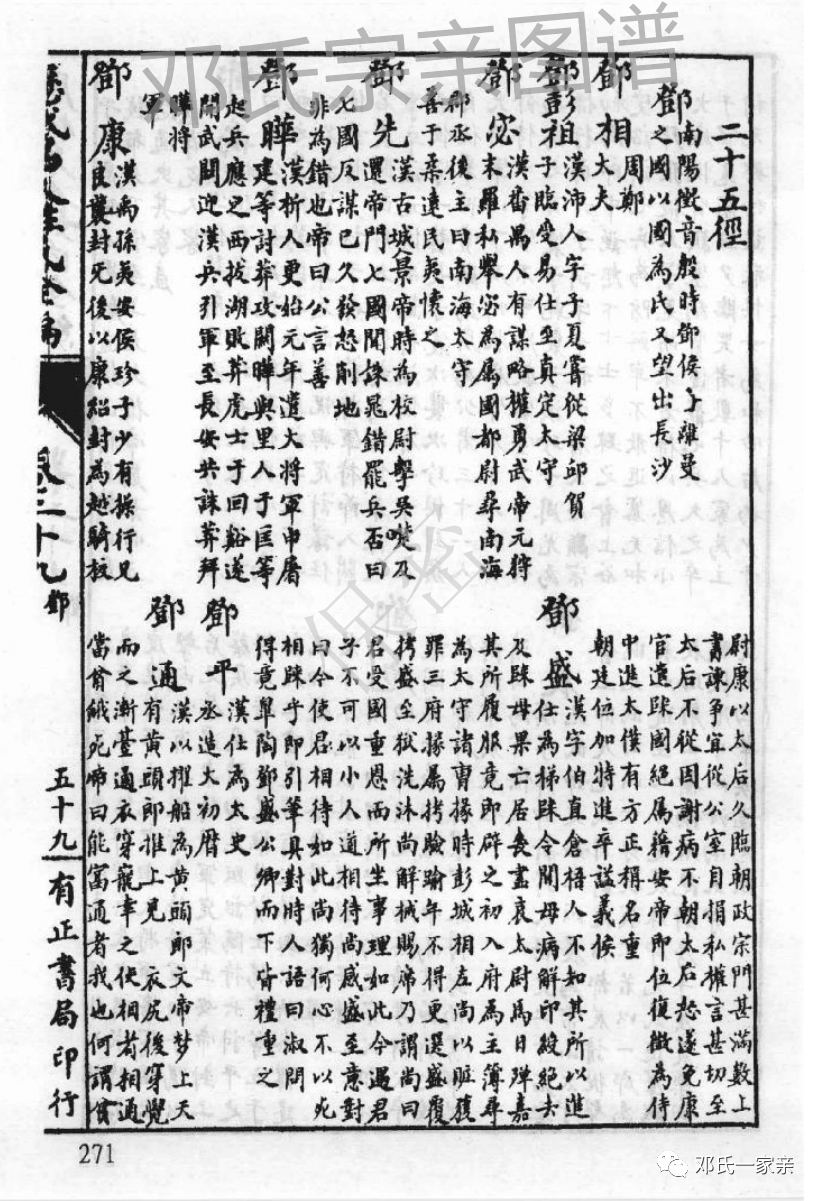 邓氏宗亲图谱
二十五徑
鄧
南陽徵音殷時鄧侯
離曼
之國以國為氏又望出長沙
鄧相
周鄭
大夫
鄧彭祖
漢沛人字子夏寬從梁邱賀
子臨受易仕至真定太守
鄧宓
漢番禺人有謀略權勇武帝元狩
末羅私舉宓為屬國都尉尋南海
郡丞後主曰南海太守
善于柔遠民夷懷之
鄧先
漢古城人景帝時為校尉擊吳楚及
還帝門七國聞誅晁錯罷兵否曰
七國反謀已久發怒削地
非為錯也帝曰公言善
鄧曄
漢析人更始元年遣大將軍申屠
建等討莽攻關曄與里人于匡等
起兵應之西拔湖敗莽虎士于回谿遂
開武關迎漢兵引軍至長安共誅莽拜
曄將
軍
鄧康
漢禹孫夷安侯珍子少有操行兄
良襲封死後以康紹封為越騎校
尉康以太后久臨朝政宗門甚滿數上
書諫爭宜從公室自損私權言甚切至
太后不從因謝病不朝太后怒遂免康
官遣歸國絕屬籍安帝即位復徵為侍
中進太僕有方正稱名重
朝廷位加特進卒諡義侯
鄧盛
漢字伯直倉梧人不知其所以進
仕為梯歸令聞母病解印綬絕去
及歸母果亡居喪盡哀太尉馬日磾嘉
其所履服竟即辟之初入府為主簿尋
為太守諸曹掾時彭城相左尚以贓獲
罪三府掾屬拷驗踰年不得更選盛覆
拷盛至獄洗沐尚解械賜席乃謂尚曰
君受國重恩而所坐事理如此今遇君
子不可以小人道相待尚感盛至意對
曰今使君相待如此尚獨何心不以死
相歸乎即引筆具對時人語曰淑問
得竟皐陶鄧盛公卿而下皆禮重之
鄧平
漢仕為太史
丞造大初曆
鄧通
漢以擢船為黃頭郎文帝夢上天
有黃頭郎推上見
衣尻後穿覺
而之漸臺通衣穿寵幸之使相者相通
當貧餓死帝曰能富通者我也何謂貧
卷三十九
鄧
五十九
有正書局印行
保密
271
邓氏一家亲